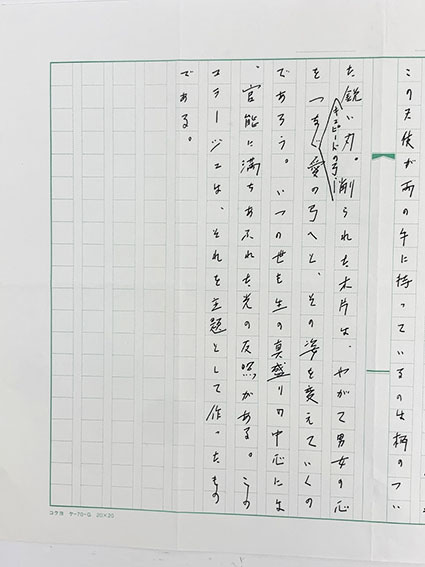 この天使が両の手に持っているのは柄のつい
た鋭い刃。削られた木片は、やがて男女の心
を一つなぐ愛の弓へと、その姿を変えていくの
キューピードの弓
であろう。いつの世も生の真盛りの中心には
、官能に満ちあふれた光の反照がある。この
コラージュは、それを主題として作ったもの
である。
コクヨ ケ-70-G 20×20